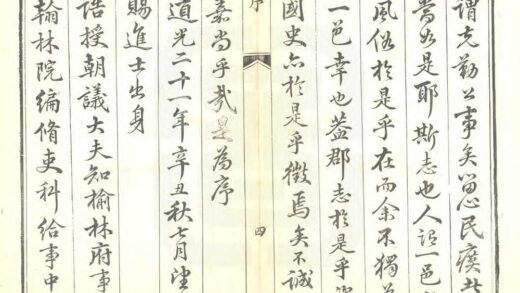 謂克勤公事矣留心民瘼
當如是耶斯志也人謂一邑
風俗於是乎在而余不獨為
一邑幸也蓋郡志於是乎資
國史亦於是乎徵焉矣不誠
序
四
嘉尚乎哉是為序
道光二十一年辛丑秋七月望
賜進士出身
誥授朝議大夫知榆林府事
翰林院編脩吏科給事中